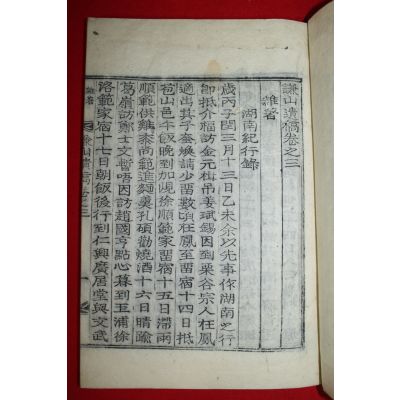 謙山遺稿卷之三
雜著
湖南紀行錄
歲丙子閏三月十三日乙未余以先事作湖南之行
卽抵介福訪金元楫吊姜斌錫因到栗谷宗人在鳳
適出其子奎煥請少留數頃在鳳至留宿十四日抵
苞山邑午飯晚到加峴徐順範家留宿十五日滯雨
順範供雞黍尚範進麵羹孔碩勸燒酒十六日晴踰
葛嶺訪鄭士文暫唔因訪趙國亨點心暮到玉浦徐
洛範家宿十七日朝飯後行到仁興廣居堂與文武
雜著
謙山遺稿卷之三
一